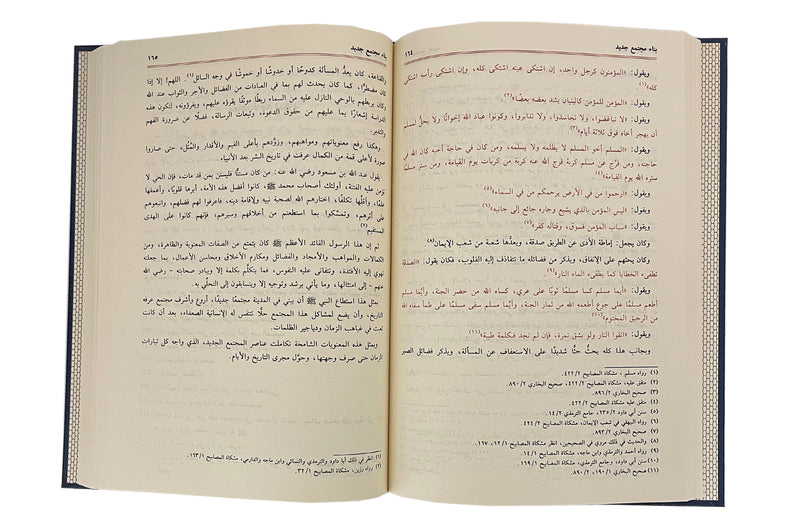 ١٦٤
بناء مجتمع جديد
ويقول: «المؤمنون كرجل واحد، إن اشتكى عينه اشتكى كله، وإن اشتكى رأسه اشتكى
كله»(١).
ويقول: «المؤمن للمؤمن كالبنيان يشد بعضه بعضًا»(٢).
ويقول: «لا تباغضوا، ولا تحاسدوا، ولا تدابروا، وكونوا عباد الله إخوانًا ولا يحل لمسلم
أن يهجر أخاه فوق ثلاثة أيام»(٣).
ويقول: «المسلم أخو المسلم لا يظلمه ولا يسلمه، ومن كان في حاجة أخيه كان الله في
حاجته، ومن فرَّج عن مسلم كربة فرج الله عنه كربة من كربات يوم القيامة، ومن ستر مسلمًا
ستره الله يوم القيامة»(٤).
ويقول: «ارحموا من في الأرض يرحمكم من في السماء»(٥).
ويقول: «ليس المؤمن بالذي يشبع وجاره جائع إلى جانبه»(٦).
ويقول: «سباب المؤمن فسوق، وقتاله كفر»(٧).
وكان يجعل: إماطة الأذى عن الطريق صدقة، ويعدها شعبة من شعب الإيمان(٨).
وكان يحثهم على الإنفاق، ويذكر من فضائله ما تتقاذف إليه القلوب، فكان يقول: «الصدقة
تطفىء الخطايا كما يطفىء الماء النار»(٩).
ويقول: «أيما مسلم كسا مسلمًا ثوبًا على عري، كساه الله من خضر الجنة، وأيّما مسلم
أطعم مسلمًا على جوع أطعمه الله من ثمار الجنة، وأيّما مسلم سقى مسلمًا على ظمأ سقاه الله
من الرحيق المختوم»(١٠).
ويقول: «اتقوا النار ولو بشق تمرة، فإن لم تجد فبكلمة طيبة»(١١).
وبجانب هذا كله يحث حثًّا شديدًا على الاستعفاف عن المسألة، ويذكر فضائل الصبر
(١) رواه مسلم، مشكاة المصابيح ٤٢٢/٢.
(٢) متفق عليه، مشكاة المصابيح ٤٢٢/٢، صحيح البخاري ٨٩٠/٢.
(٣) صحيح البخاري ٨٩٦/٢.
(٤) متفق عليه مشكاة المصابيح ٤٢٢/٢.
(٥) سنن أبي داود ٢٣٥/٢، جامع الترمذي ١٤/٢.
(٦) رواه البيهقي في شعب الإيمان، مشكاة المصابيح ٤٢٤/٢.
(٧) صحيح البخاري ٨٩٣/٢.
(٨) والحديث في ذلك مروي في الصحيحين، انظر مشكاة المصابيح ١٢/١، ١٦٧.
(٩) رواه أحمد والترمذي وابن ماجه، مشكاة المصابيح ١٤/١.
(١٠) سنن أبي داود، وجامع الترمذي، مشكاة المصابيح ١٦٩/١.
(١١) صحيح البخاري ١٩٠/١، ٨٩٠/٢.
بناء مجتمع جديد
١٦٥
والقناعة، كان يعدُّ المسألة كدوحًا أو خدوشًا أو خموشًا في وجه السائل(١). اللهم! إلا إذا
كان مضطرًا، كما كان يحدث لهم بما في العبادات من الفضائل والأجر والثواب عند الله
وكان يربطهم بالوحي النازل عليه من السماء ربطًا موثقًا يقرؤه عليهم، ويقرؤونه، لتكون هذه
الدراسة إشعارًا بما عليهم من حقوق الدعوة، وتبعات الرسالة، فضلًا عن ضرورة الفهم
والتدبر.
وهكذا رفع معنوياتهم ومواهبهم، وزوّدهم بأعلى القيم والأقدار والمُثُل، حتى صاروا
صورة لأعلى قمة من الكمال عرفت في تاريخ البشر بعد الأنبياء.
يقول عبد الله بن مسعود رضي الله عنه: من كان مستنًّا فليستن بمن قد مات، فإن الحي لا
تؤمن عليه الفتنة، أولئك أصحاب محمد ﷺ كانوا أفضل هذه الأمة، أبرها قلوبًا، وأعمقها
علمًا، وأقلّها تكلفًا، اختارهم الله لصحبة نبيه ولإقامة دينه، فاعرفوا لهم فضلهم، واتبعوهم
على أثرهم، وتمسّكوا بما استطعتم من أخلاقهم وسيرهم، فإنهم كانوا على الهدى
المستقيم(٢).
ثم إن هذا الرسول القائد الأعظم ﷺ كان يتمتع من الصفات المعنوية والظاهرة، ومن
الكمالات والمواهب والأمجاد والفضائل ومكارم الأخلاق ومحاسن الأعمال، بما جعلته
تهوي إليه الأفئدة، وتتفانى عليه النفوس، فما يتكلّم بكلمة إلا ويبادر صحابته - رضي الله
عنهم - إلى امتثالها، وما يأتي برشد وتوجيه إلا ويتسابقون إلى التحلّي به.
بمثل هذا استطاع النبي ﷺ أن يبني في المدينة مجتمعًا جديدًا، أروع وأشرف مجتمع عرفه
التاريخ، وأن يضع لمشاكل هذا المجتمع حلًّا تتنفس له الإنسانية الصعداء، بعد أن كانت
تعبت في غياهب الزمان ودياجير الظلمات.
وبمثل هذه المعنويات الشامخة تكاملت عناصر المجتمع الجديد، الذي واجه كل تيارات
الزمان حتى صرف وجهتها، وحوّل مجرى التاريخ والأيام.
(١) انظر في ذلك أبا داود والترمذي والنسائي وابن ماجه والدارمي، مشكاة المصابيح ١٦٣/١.
(٢) رواه رزين، مشكاة المصابيح ٣٢/١.